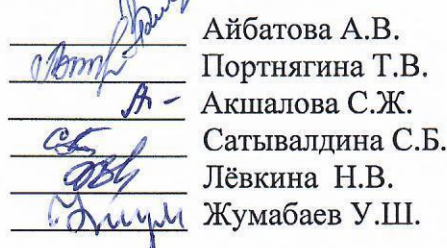 Айбатова А.В.
Портнягина Т.В.
Акшалова С.Ж.
Сатывалдина С.Б.
Лёвкина Н.В.
Жумабаев У.Ш.